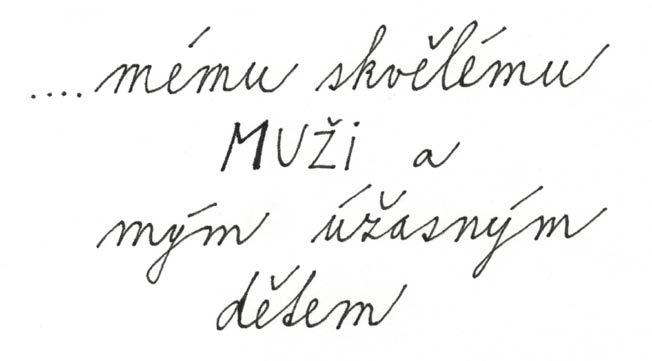 ....mému skvělému
MUŽi a
mým úžasným
dětem